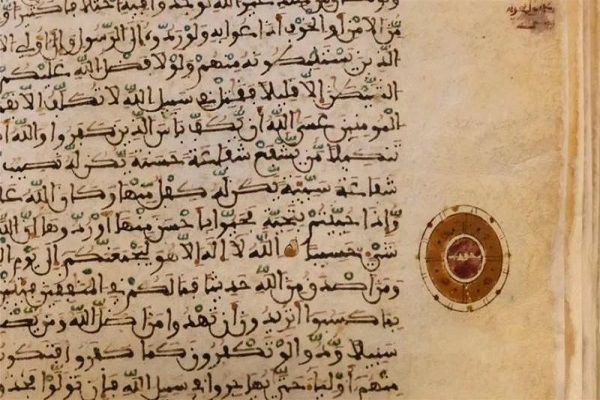 غير الله لوجدوا فيه اختلفا كثيرا
من الامن أو الخوف أذاعوا به ولو ردوه إلى الرسول وإلى أولى
الذين يستنبطونه منهم ولولا فضل الله عليكم
الشيطن إلا قليلا فقتل في سبيل الله لا تكلف إلا
المومنين عسى الله أن يكف بأس الذين كفروا والله
تنكيلا من يشفع شفاعة حسنة يكن له نصيب
شفاعة سيئة يكن له كفل منها وكان الله
وإذا حييتم بتحية فحيوا بأحسن منها أو ردوها إن الله
شيء حسيبا الله لا إله إلا هو ليجمعنكم إلى يوم
ومن أصدق من الله حديثا فما لكم في المنفقين فئتين
بما كسبوا أتريدون أن تهدوا من أضل الله ومن
سبيلا ودوا لو تكفرون كما كفروا فتكونون
منهم أولياء حتى يهاجروا في سبيل الله فإن تولوا